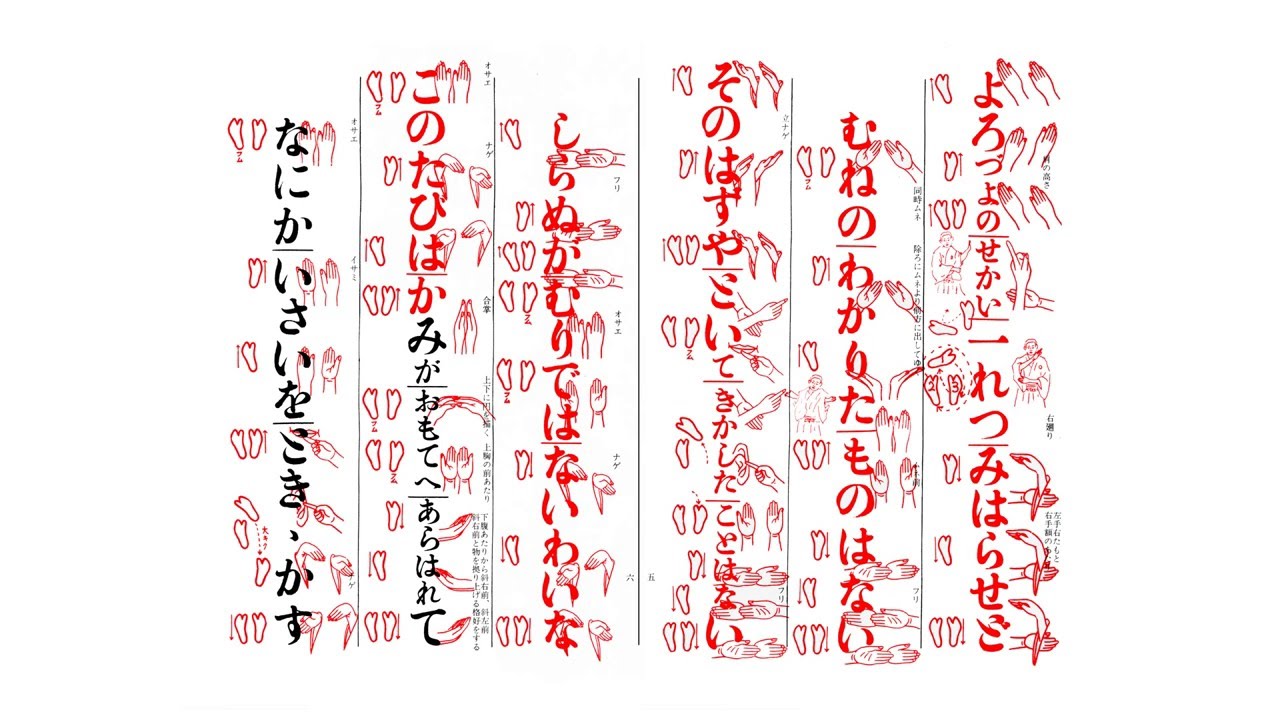 肩の高さ
右廻り
左手右たもと
よろづよのせかい一れつみはらせど
同時ムネ
フリ
むねのわかりたものはない
フム
立ナゲ
フリ
そのはずやといてきかしたことはない
フム
五
六
フリ
オサエ
ナゲ
しらぬがむりではないわいな
フム
フム
オサエ
ナゲ
合掌
上下に円を描く
上胸の前あたり
下腹あたりから斜右前、斜左前
斜右前と物を拠り上げる格好をする
このたびはかみがおもてへあらはれて
フム
フム
フム
オサエ
イサミ
ナゲ
なにかいさいをとき、かす
フム
大キク